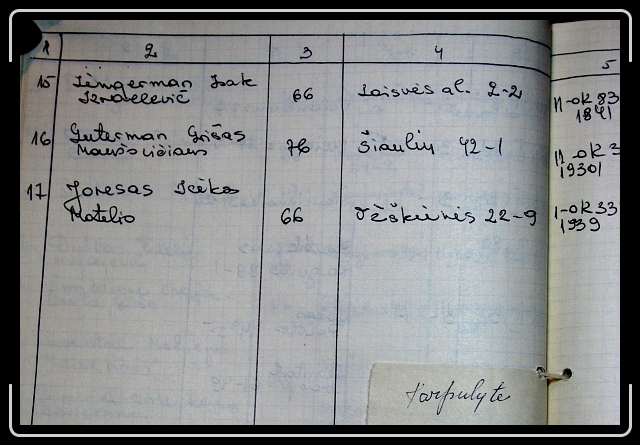 1 2 3 4 5
15 Isak 66 Laisvės al. 2-2 11-ok 83
Izraelevič 1841
16 Guterman Grišas 76 Šiaulių 42-1 11 ok 3
19301
17 Joresas Ickos
Motelio 66 22-9 1-ok 33
1939
Karpulyte